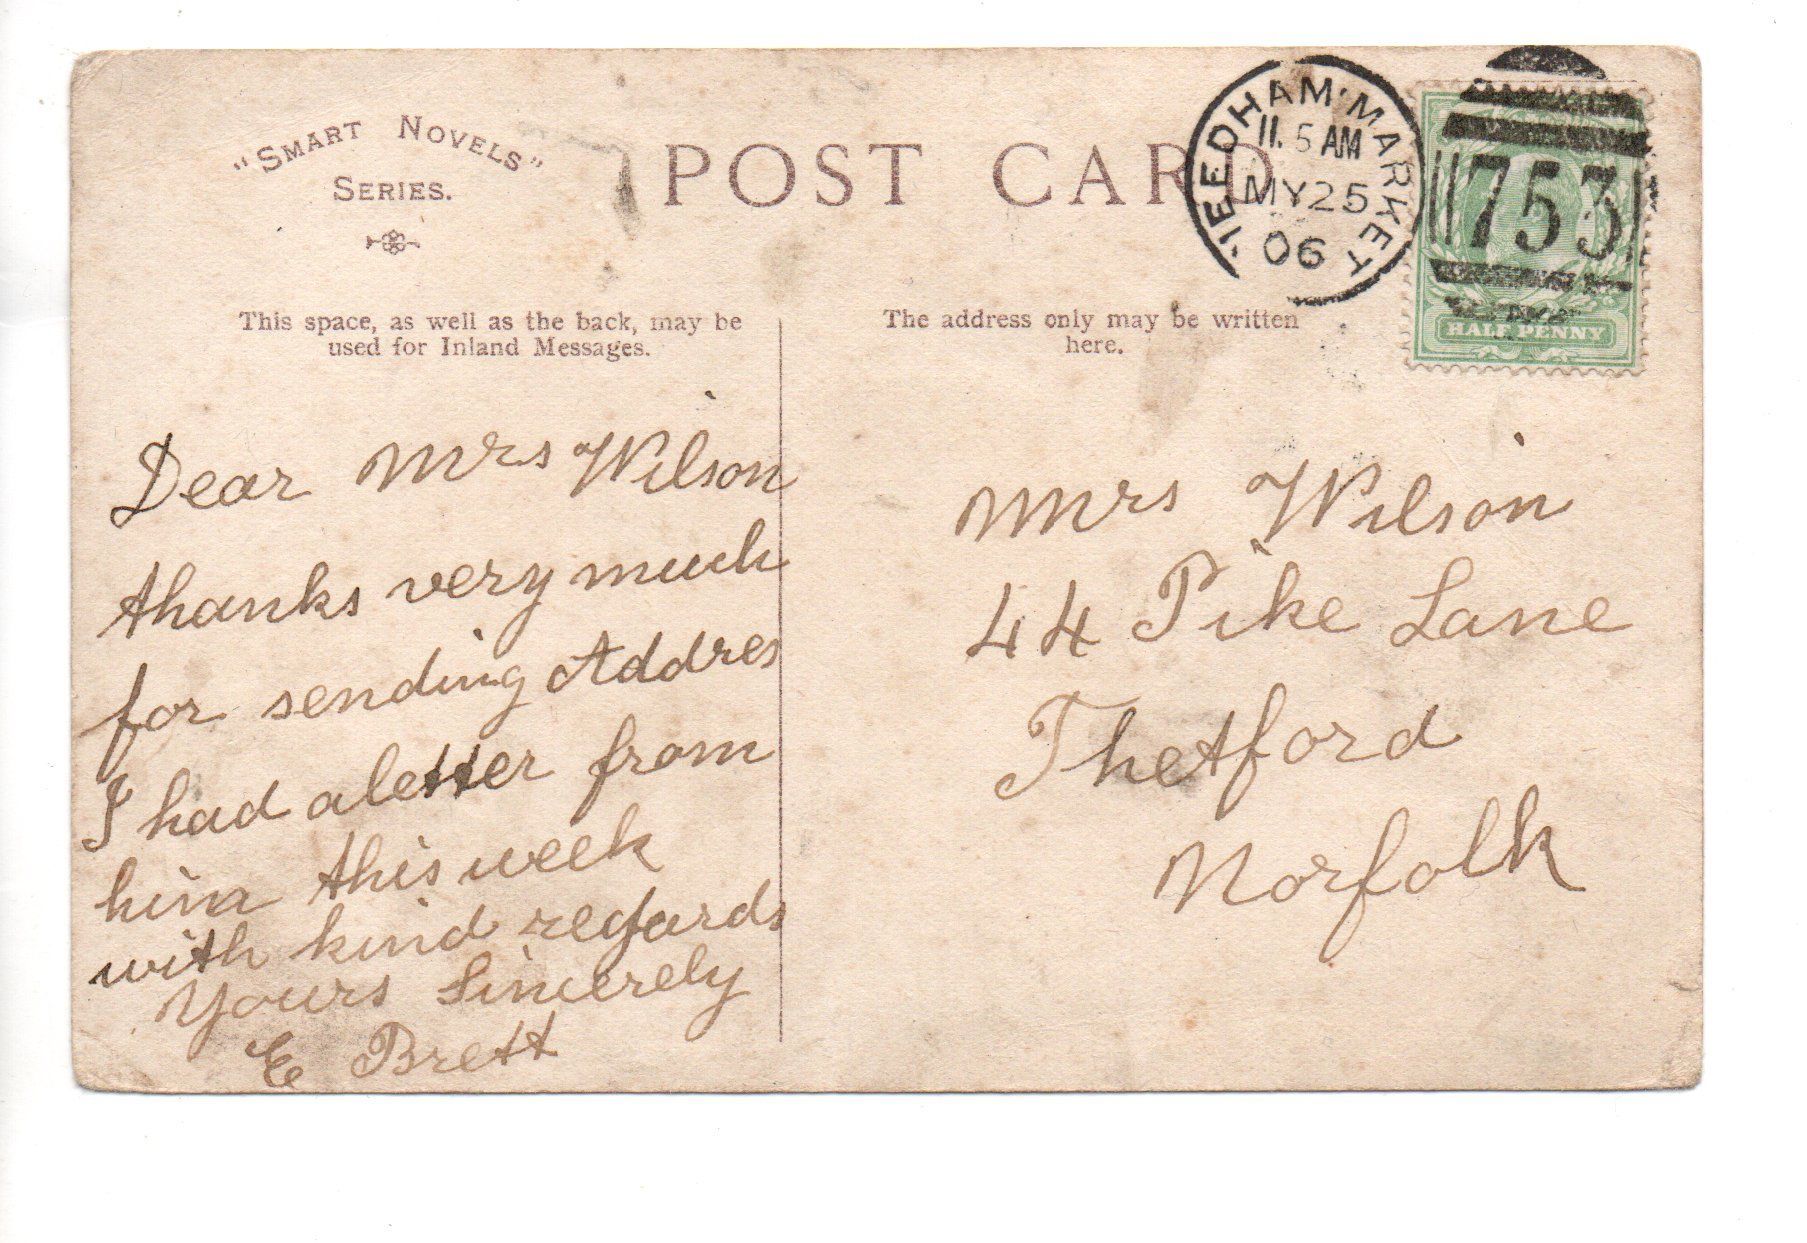 "SMART NOVELS"
SERIES.
POST CARD
NEEDHAM·MARKET
11.5 AM
MY 25
06
753
HALF PENNY
This space, as well as the back, may be
used for Inland Messages.
The address only may be written
here.
Dear Mrs Wilson
thanks very much
for sending Addres
I had a letter from
him this week
with kind regards
Yours Sincerely
E Brett
Mrs Wilson
44 Pike Lane
Thetford
Norfolk